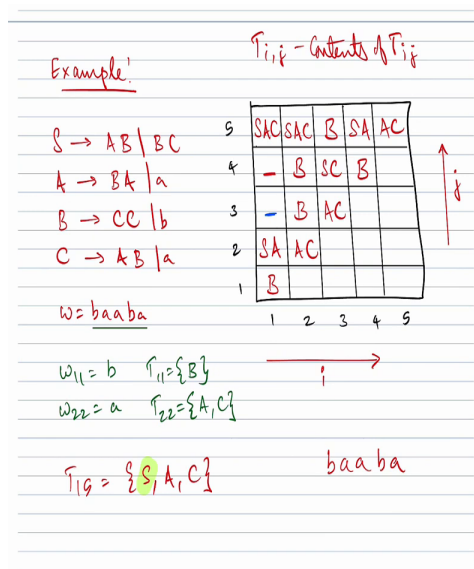 T i,j - Contents of Tij
Example!
S → AB | BC
A → BA | a
B → CC | b
C → AB | a
w = baaba
5 SAC SAC B SA AC
4 - B SC B
3 - B AC
2 SA AC
1 B
1 2 3 4 5
j
i
w11 = b T11 = {B}
w22 = a T22 = {A, C}
T15 = {S, A, C}
baaba